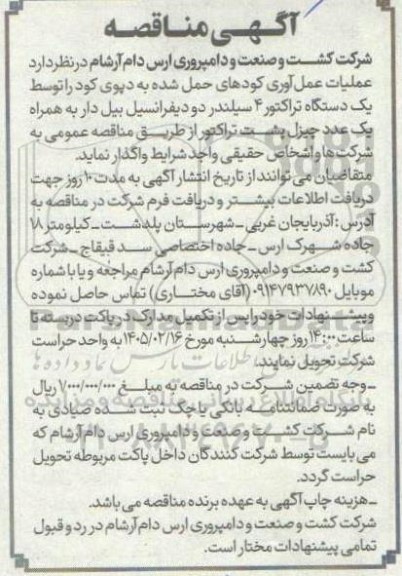 آگهی مناقصه
شرکت کشت و صنعت و دامپروری ارس دام آرشام در نظر دارد
عملیات عمل‌آوری کودهای حمل شده به دپوی کود را توسط
یک دستگاه تراکتور ۴ سیلندر دو دیفرانسیل بیل دار به همراه
یک عدد چیزل پشت تراکتور از طریق مناقصه عمومی به
شرکت‌ها و اشخاص حقیقی واجد شرایط واگذار نماید.
متقاضیان می‌توانند از تاریخ انتشار آگهی به مدت ۱۰ روز جهت
دریافت اطلاعات بیشتر و دریافت فرم شرکت در مناقصه به
آدرس: آذربایجان غربی ـ شهرستان پلدشت ـ کیلومتر ۱۸
جاده شهرک ارس ـ جاده اختصاصی سد قیقاج ـ شرکت
کشت و صنعت و دامپروری ارس دام آرشام مراجعه و یا با شماره
موبایل ۰۹۱۴۷۹۳۷۸۹۰ (آقای مختاری) تماس حاصل نموده
و پیشنهادات خود را پس از تکمیل مدارک در پاکت دربسته تا
ساعت ۱۴:۰۰ روز چهارشنبه مورخ ۱۴۰۵/۰۲/۱۶ به واحد حراست
شرکت تحویل نمایند.
ـ وجه تضمین شرکت در مناقصه به مبلغ ۷/۰۰۰/۰۰۰/۰۰۰ ریال
به صورت ضمانتنامه بانکی یا چک ثبت شده صیادی به
نام شرکت کشت و صنعت و دامپروری ارس دام آرشام که
می‌بایست توسط شرکت کنندگان داخل پاکت مربوطه تحویل
حراست گردد.
ـ هزینه چاپ آگهی به عهده برنده مناقصه می‌باشد.
شرکت کشت و صنعت و دامپروری ارس دام آرشام در رد و قبول
تمامی پیشنهادات مختار است.